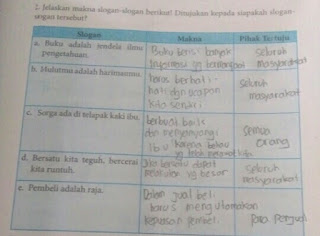 2. Jelaskan makna slogan-slogan berikut! Ditujukan kepada siapakah slogan-
slogan tersebut?
Slogan
Makna
Pihak Tertuju
a. Buku adalah jendela ilmu
pengetahuan.
Buku berisi banyak
informasi yg bermanfaat
Seluruh
masyarakat
b. Mulutmu adalah harimaumu.
harus berhati-
hati dgn ucapan
kita sendiri
Seluruh
masyarakat
c. Surga ada di telapak kaki ibu.
berbuat baik
dan menyayangi
ibu karena beliau
yg telah merawat kita
Semua
orang
d. Bersatu kita teguh, bercerai
kita runtuh.
Jika bersatu dapat
melakukan yg besar
Seluruh
masyarakat
e. Pembeli adalah raja.
Dalam jual beli
harus mengutamakan
kepuasan pembeli.
Para penjual